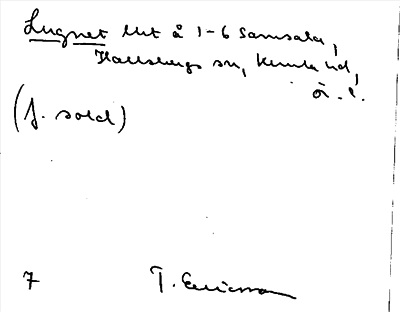 Lugnet lht å 1-6 Samsala,
Hallsbergs sn, Kumla hd,
ör. l.
(f. sold)
7 T. Ericsson